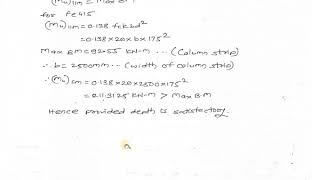 (Mu)lim = Max B.M
for Fe415
(Mu)lim = 0.138 fck bd²
= 0.138×20×b×175²
Max BM = 92.55 kN-m ... (Column strip)
∴ b = 2500mm ... (width of column strip)
∴ (Mu)lim = 0.138×20×2500×175²
= 211.3125 kN-m > Max B.M
Hence provided depth is satisfactory.